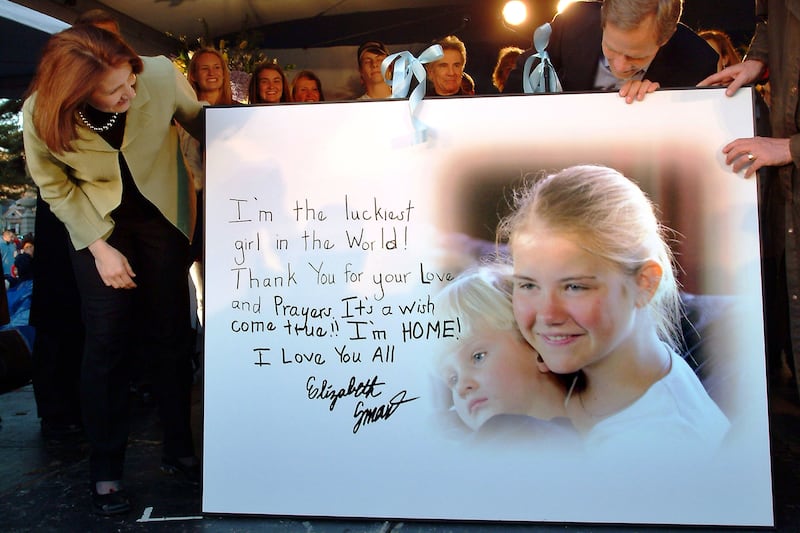 I'm the luckiest
girl in the World!
Thank You for your Love
and Prayers. It's a wish
come true!! I'm HOME!
I Love You All
Elizabeth
Smart